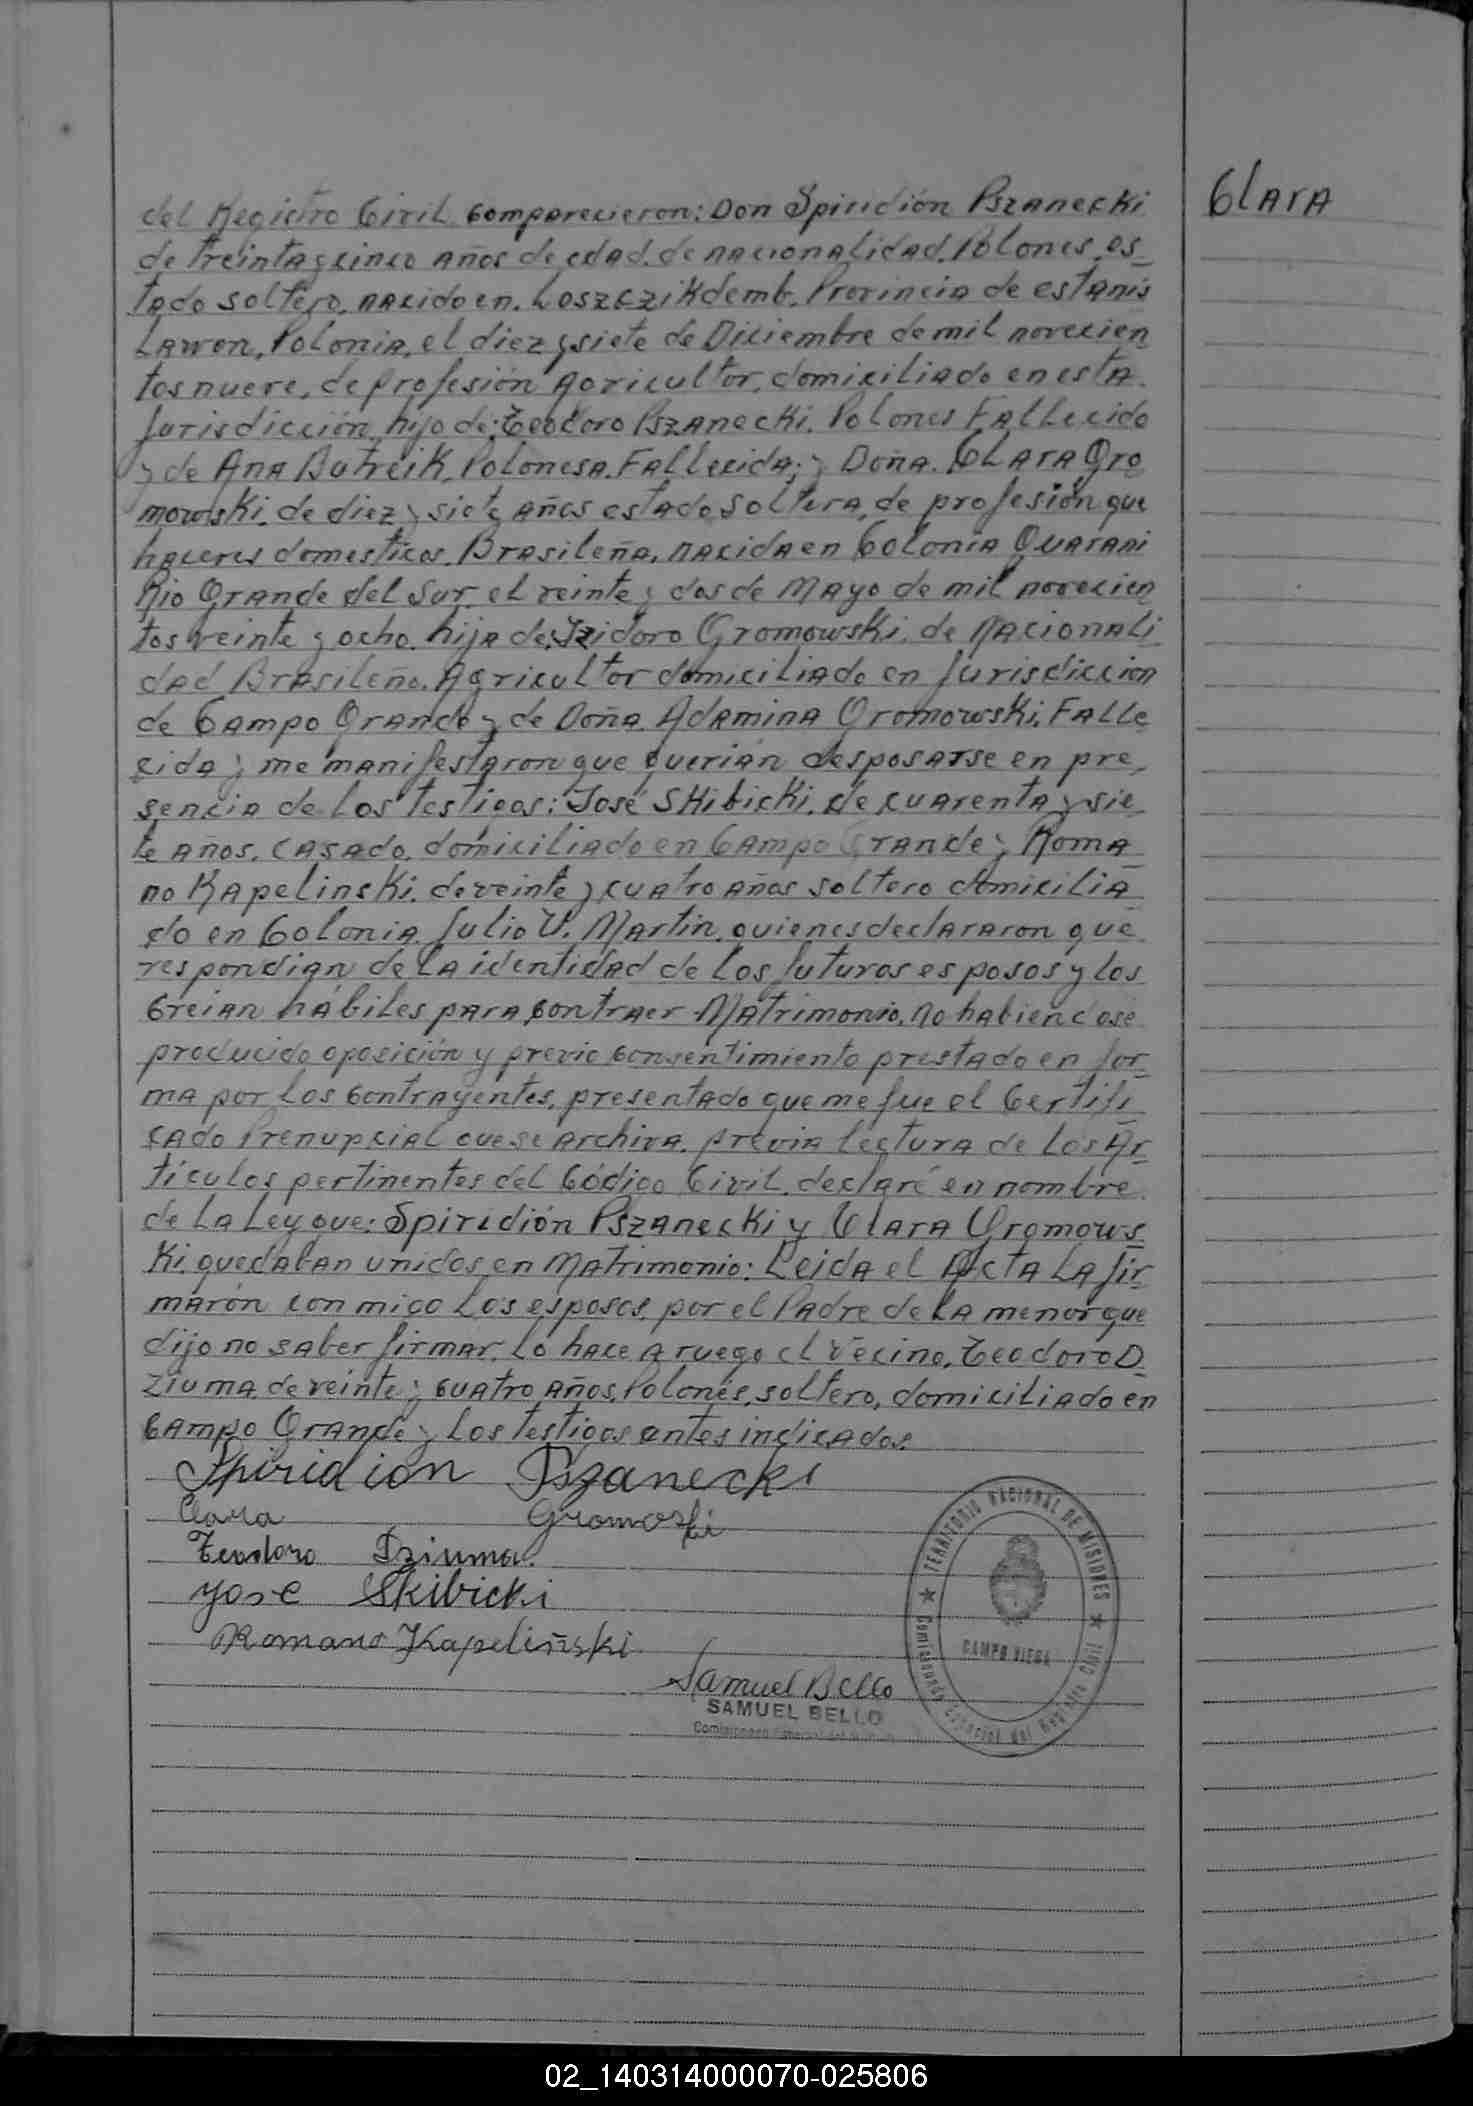 Clara
del Registro Civil comparecieron: Don Spiridión Pszanecki
de treinta y cinco años de edad. de nacionalidad. Polones, es
tado soltero, nacido en. Loszczikdemb, Provincia de estanis
Lawon, Polonia, el diez y siete de Diciembre de mil novecien
tos nueve, de profesión Agricultor, domiciliado en esta
Jurisdicción, hijo de: Teodoro Pszanecki. Polones Fallecido
y de Ana Butreik, Polonesa. Fallecida; y Doña. Clara Gro
mowski. de diez y siete años estado soltera, de profesión que
haceres domesticos. Brasileña, nacida en Colonia Guarani
Rio Grande del Sur. el veinte y dos de Mayo de mil novecien
tos veinte y ocho. hija de: Izidoro Gromowski. de Nacionali
dad Brasileño. Agricultor domiciliado en Jurisdiccion
de Campo Grande y de Doña Adamina Gromowski. Falle
cida y me manifestaron que querian desposarse en pre,
sencia de los testigos: José Skibicki. de cuarenta y sie
te años. casado, domiciliado en Campo Grande y Roma
no Kapelinski. de veinte y cuatro años soltero domicilia
do en Colonia Julio U. Martin. quienes declararon que
respondian de la identidad de los futuros esposos y los
creian hábiles para contraer Matrimonio. No habiendose
producido oposición y previo consentimiento prestado en for
ma por los contrayentes, presentado que me fue el Certifi
cado Prenupcial que se archiva. previa lectura de los Ar
tículos pertinentes del Código Civil. declaré en nombre
de la Ley que: Spiridión Pszanecki y Clara Gromows
ki. quedaban unidos en Matrimonio: Leida el Acta la fir
maron con migo los esposos, por el Padre de la menor que
dijo no saber firmar. lo hace a ruego el vecino, Teodoro D
ziuma de veinte y cuatro años, Polonés, soltero, domiciliado en
Campo Grande y los testigos antes indicados.
Spiridion Pszanecki
Clara Gromoski
Teodoro Dziuma.
Jose Skibicki
Romano Kapeliński
Samuel Bello
SAMUEL BELLO
TERRITORIO NACIONAL DE MISIONES
CAMPO VIERA
Comisionado Especial del Registro Civil
02_140314000070-025806